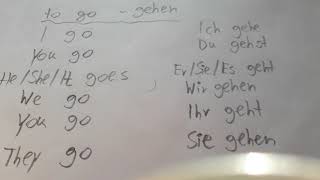 to go - gehen
I go
You go
He/She/It goes
We go
You go
They go
Ich gehe
Du gehst
Er/Sie/Es geht
Wir gehen
Ihr geht
Sie gehen